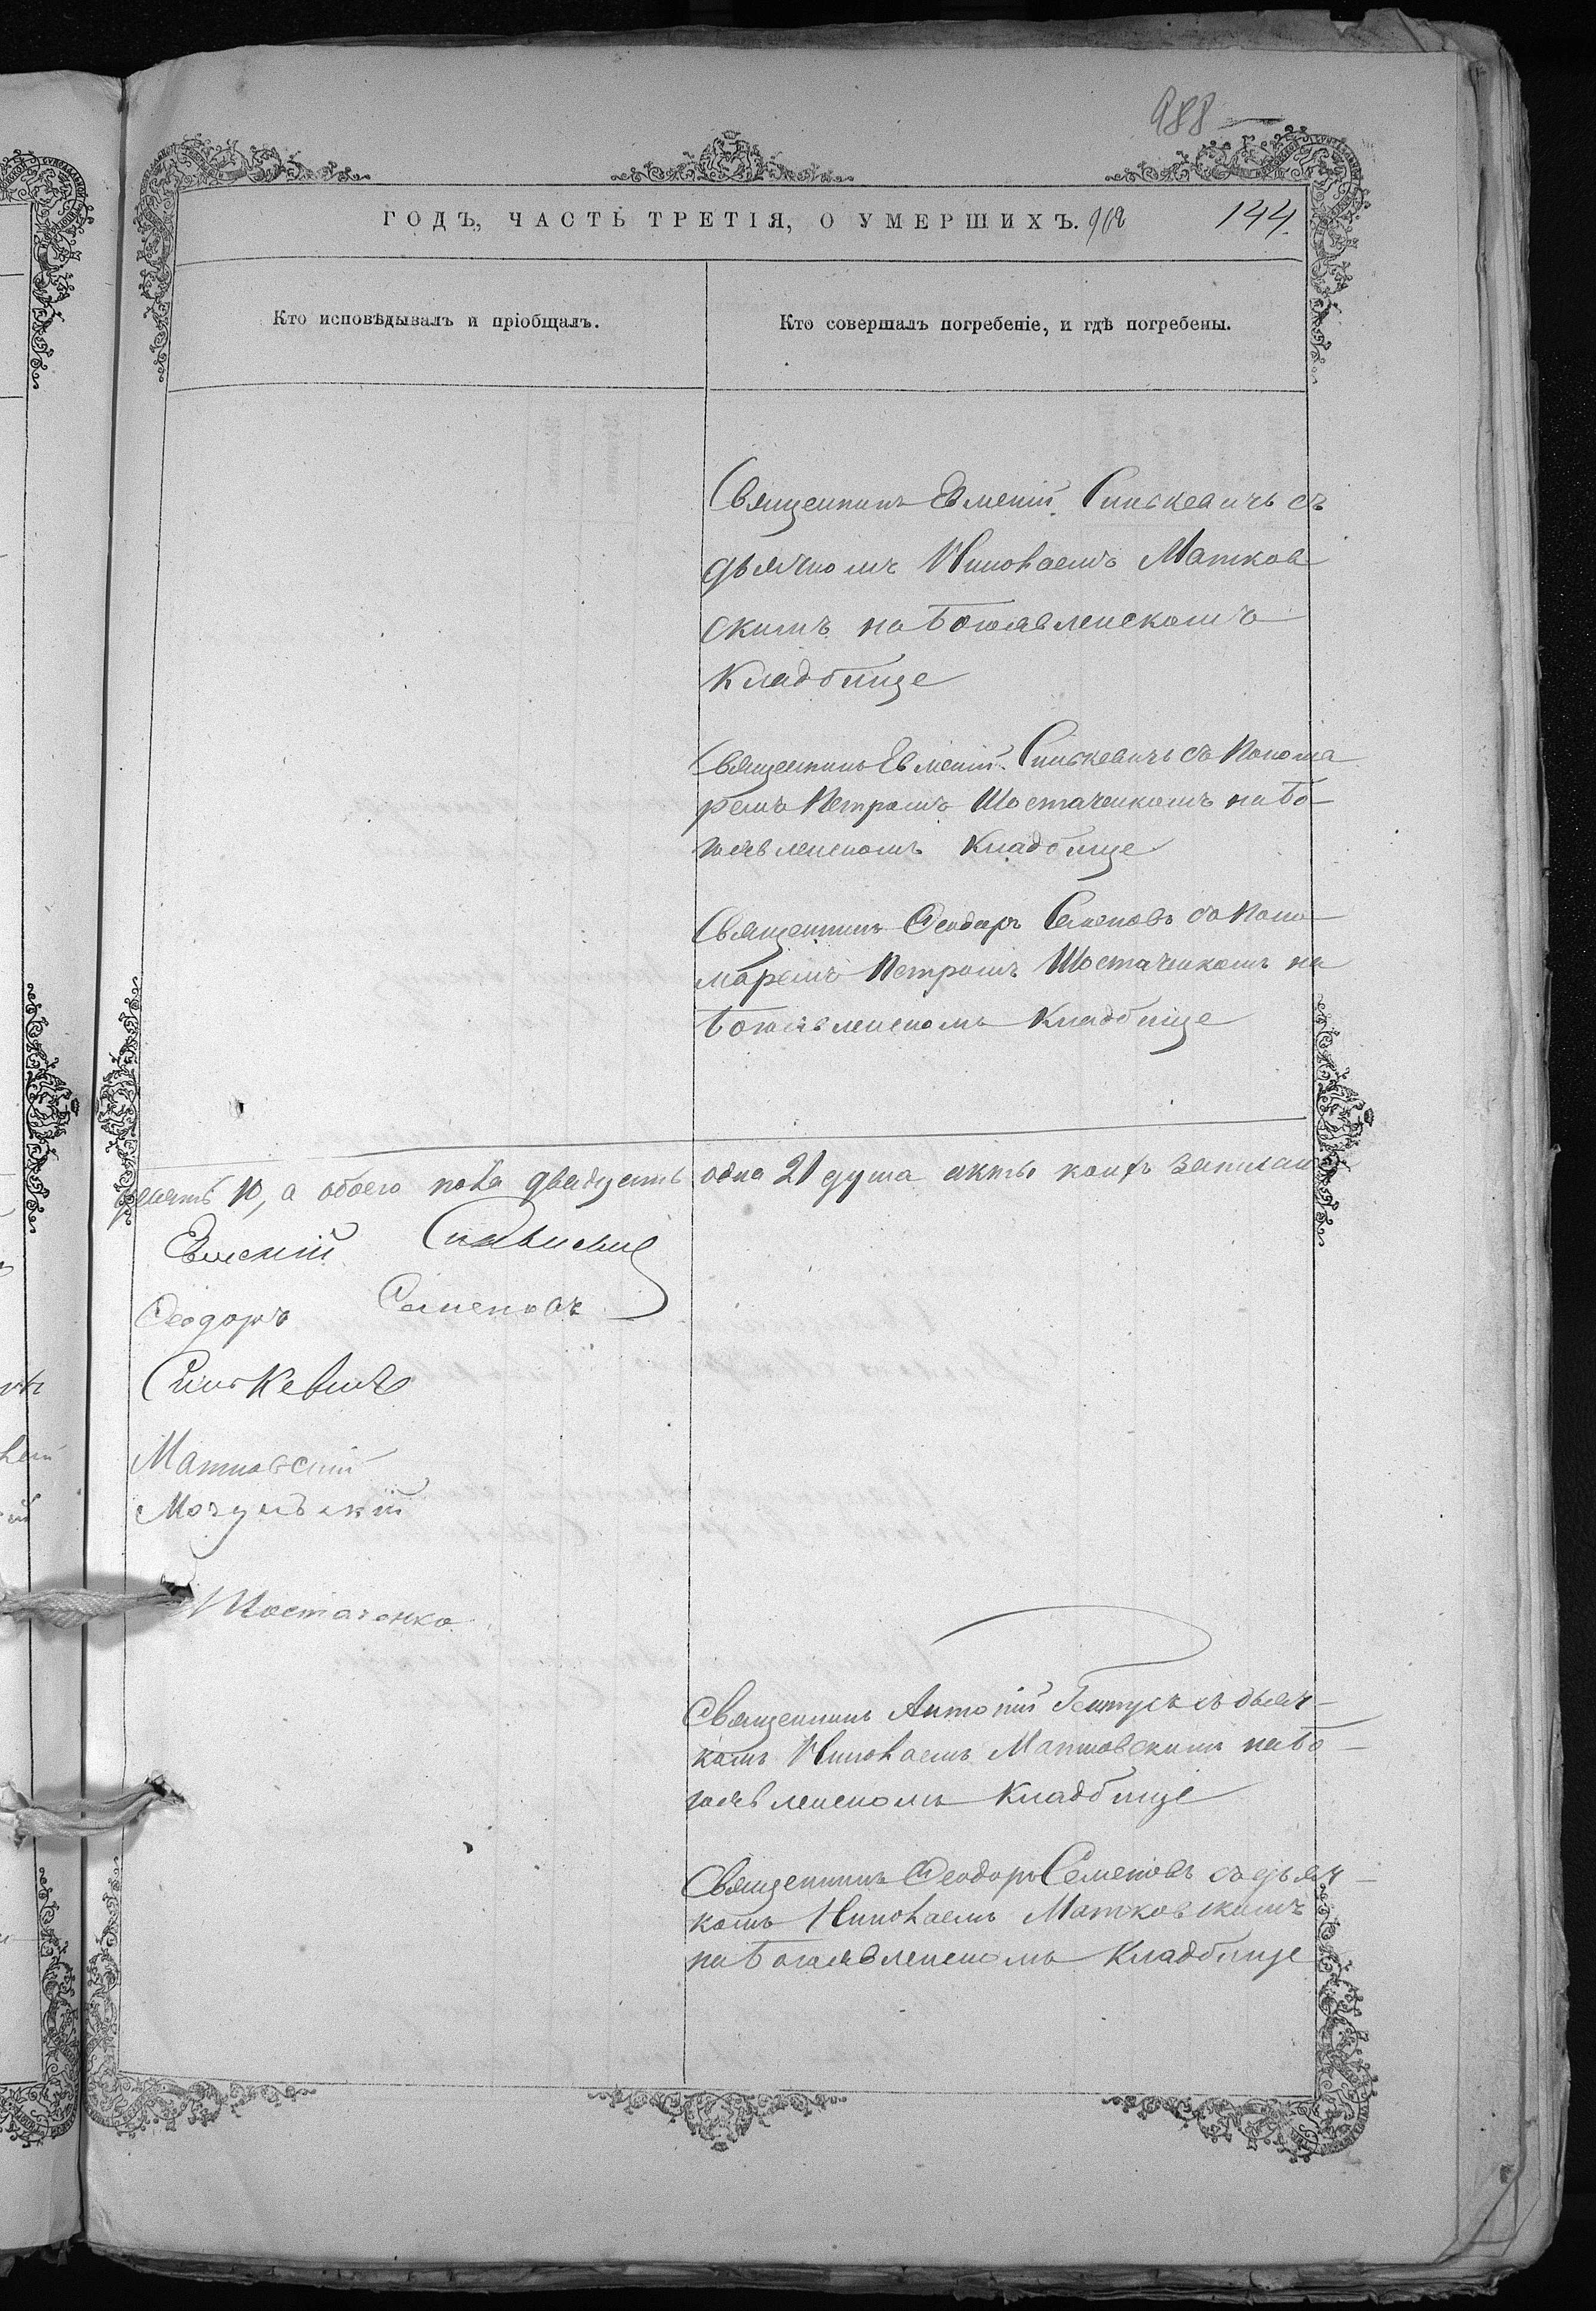 988
ГОДЪ, ЧАСТЬ ТРЕТІЯ, О УМЕРШИХЪ. 144.
Кто исповѣдывалъ и пріобщалъ.
Кто совершалъ погребеніе, и гдѣ погребены.
Священникъ Евменій Синькевичь съ
дьячкомъ Николаемъ Матков
скимъ на Богоявленскомъ
Кладбище
Священникъ Евменій Синькевичь съ Понома
ремъ Петромъ Шостаченкомъ на Бо-
гоявленскомъ Кладбище
Священникъ Ѳеодоръ Семеновъ съ Поно-
моремъ Петромъ Шостаченкомъ на
Богоявленскомъ Кладбище
десять 10, а обоего пола двадцать одна 21 душа акты коихъ записан
Евменій Синькевич
Ѳеодоръ Семеновъ
Синькевичъ
Матковскій
Мочульскій
Шостаченко
Священникъ Антоній съ дьяч-
комъ Николаемъ Матковскимъ на Бо-
гоявленскомъ Кладбище
Священникъ Ѳеодоръ Семеновъ съ дьяч-
комъ Николаемъ Матковскимъ
на Богоявленскомъ Кладбище